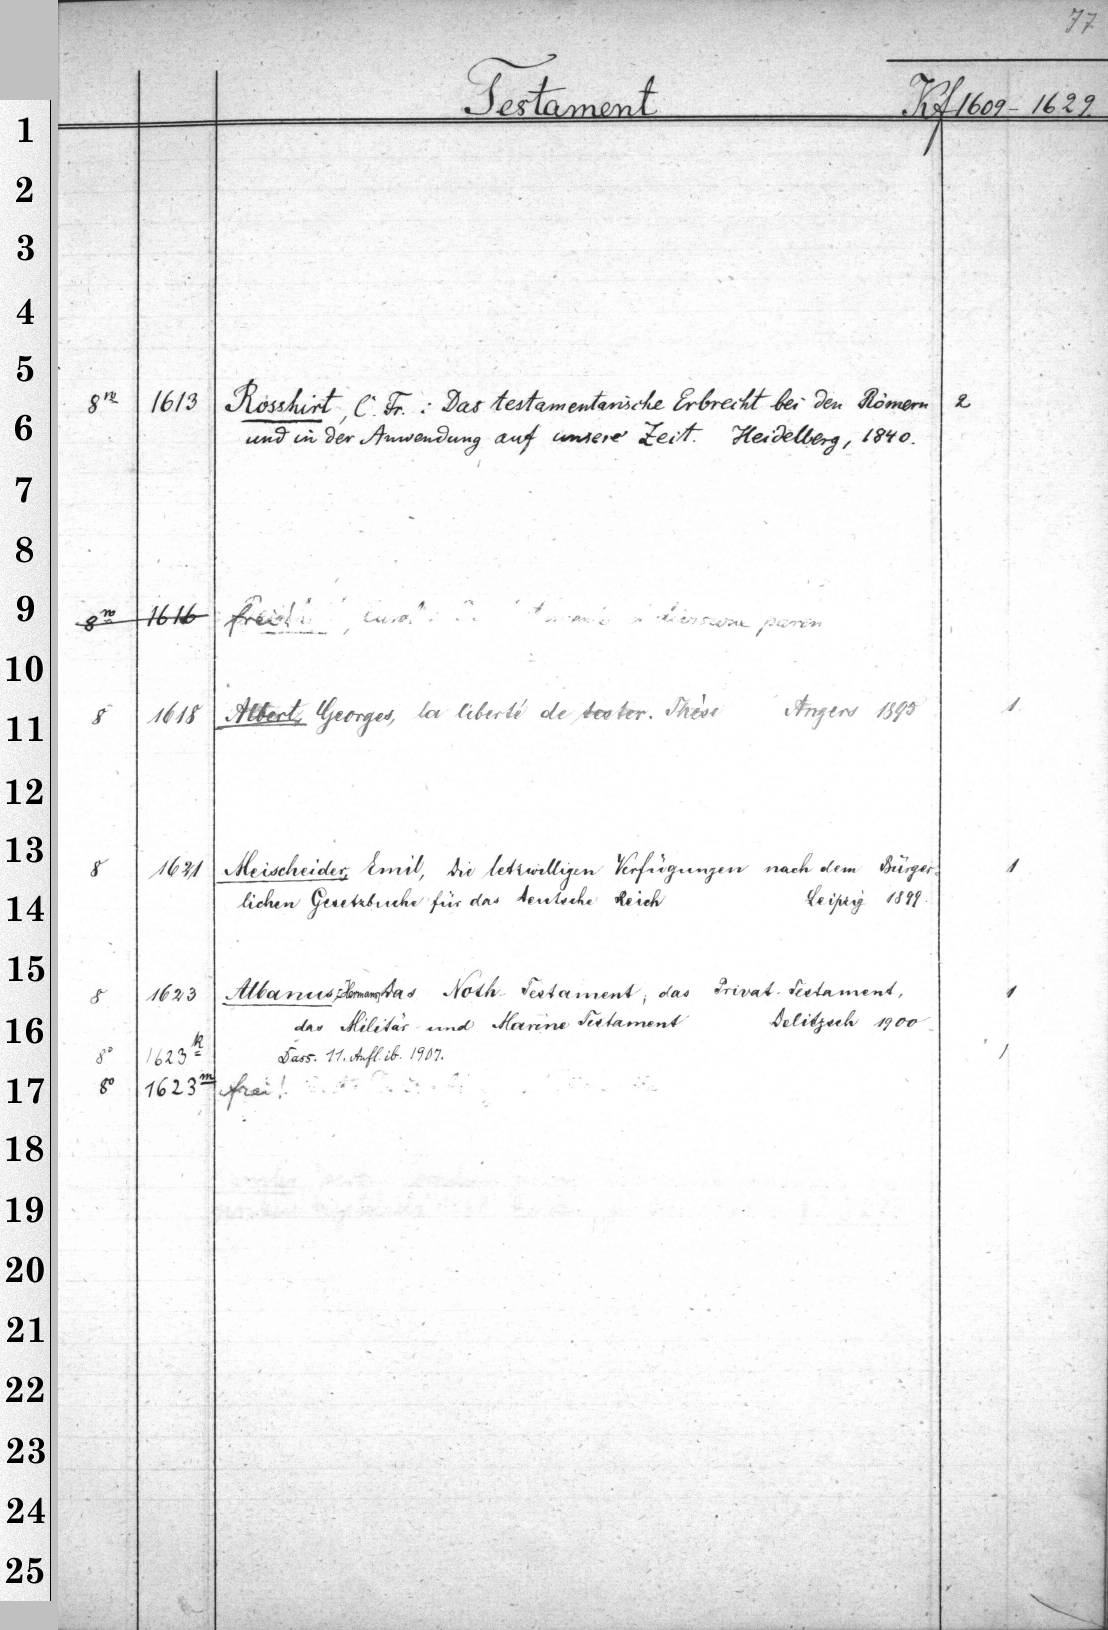 77
Testament Kf 1609 - 1629.
1
2
3
4
5
8no 1613 Rosshirt, C. Fr. : Das testamentarische Erbrecht bei den Römern 2
6
und in der Anwendung auf unsere Zeit. Heidelberg, 1840.
7
8
9
8no 1616 frei!
10
8 1618 Albert, Georges, la liberté de tester. Thèse Angers 1895 1
11
12
13
8 1621 Meischeider, Emil, Die letzwilligen Verfügungen nach dem Bürger- 1
14
lichen Gesetzbuche für das Deutsche Reich Leipzig 1899.
15
8 1623 Albanus, Hermann, Das Noth-Testament, das Privat-Testament, 1
16
das Militär- und Marine Testament Delitzsch 1900
8° 1623k Dass. 11. Aufl. ib. 1907. 1
17
8° 1623m frei!
18
19
20
21
22
23
24
25